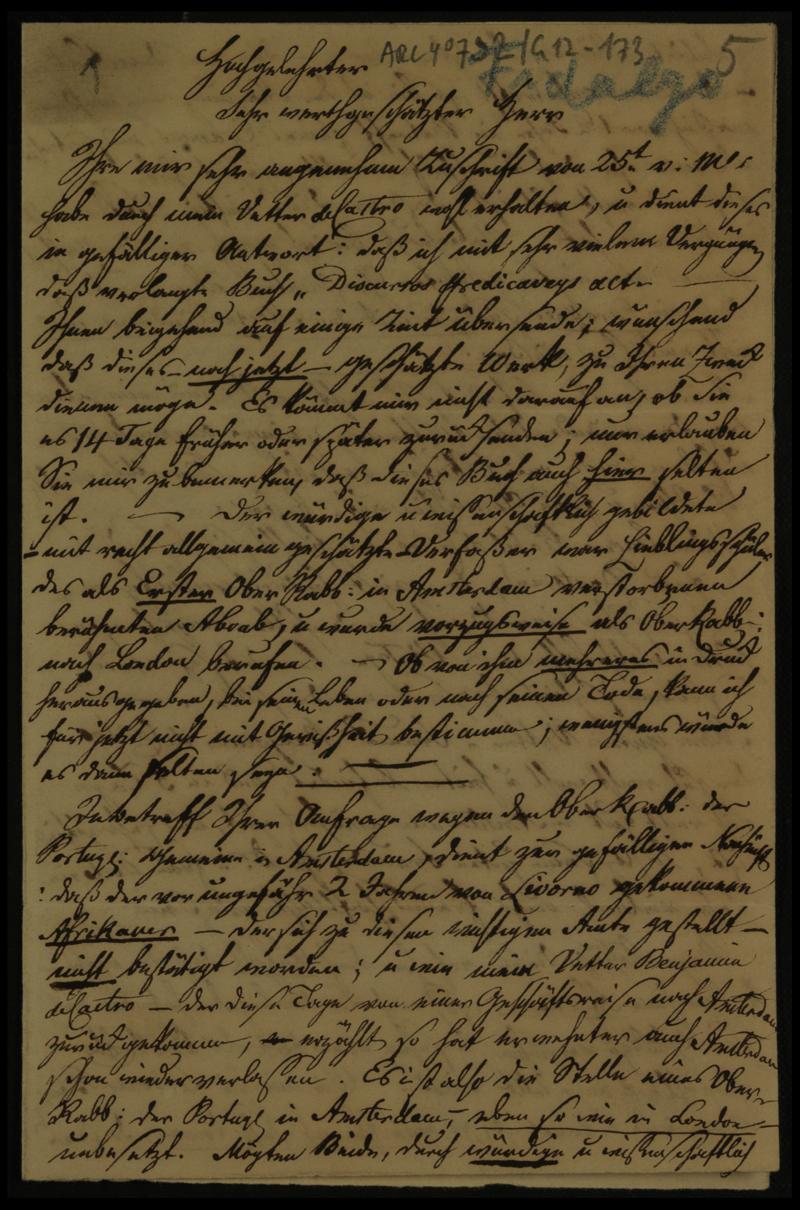 ARC 4° 792/G12-173 5
Fidalgo
Hochgelehrter
Sehr werthgeschätzter Herr
Ihre mir sehr angenehme Zuschrift von 25t v: Mts
habe durch mein Vetter de Castro wohl erhalten, u dient dieses
in gefälliger Antwort: daß ich mit sehr vielem Vergnügen
daß verlangte Buch „ Discursos Predicaveys
Ihnen beigehend auf einige Zeit übersende; wünschend
daß dieses – noch jetzt – geschätzte Werk, zu Ihren Zweck
dienen möge. Es kömmt mir nicht darauf an, ob Sie
es 14 Tage früher oder später zurücksenden; nur erlauben
Sie mir zu bemerken, daß dieses Buch auch hier selten
ist. — Der würdige u wissenschaftlich gebildete
– mit recht allgemein geschätzte Verfaßer war Lieblingsschüler
des als Erster Ober Rabb: in Amsterdam verstorbenen
berühmten Aboab, u wurde vorzugsweise als Ober Rabb:
nach London berufen. — Ob von ihm mehreres in Druck
herausgegeben, bei seinem Leben oder nach seinem Tode, kann ich
für jetzt nicht mit Gewißheit bestimmen; wenigstens würde
es dann selten seyn.
In betreff Ihrer Anfrage wegen den Ober Rabb: der
Portugs: Gemeine in Amsterdam, dient zur gefälligen Nachricht
: daß der vor ungefähr 2 Jahren von Livorno gekommene
Afrikaner – der sich zu diesen wichtigen Amte gestellt –
nicht bestätigt worden; u wie mein Vetter Benjamin
de Castro – der diese Tage von einer Geschäftsreise nach Amsterdam
zurückgekommen, erzählt, so hat erwehnter auch Amsterdam
schon wieder verlassen. Es ist also die Stelle eines Ober-
Rabb: der Portugs in Amsterdam, eben so wie in London –
unbesetzt. Mögten Beide, durch würdige u wissenschaftlich